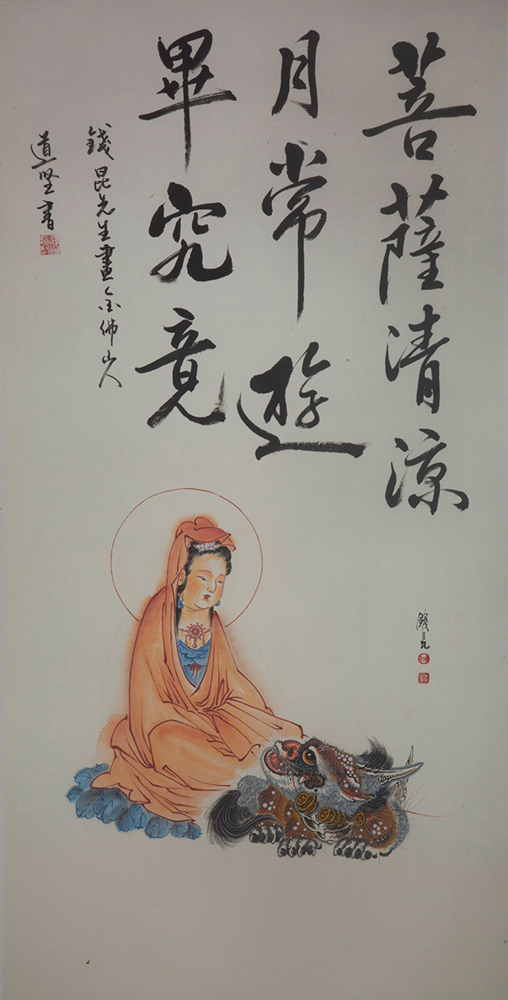 菩薩清涼
月常遊
畢究竟
錢昆先生畫金佛山人
道堅書
錢昆